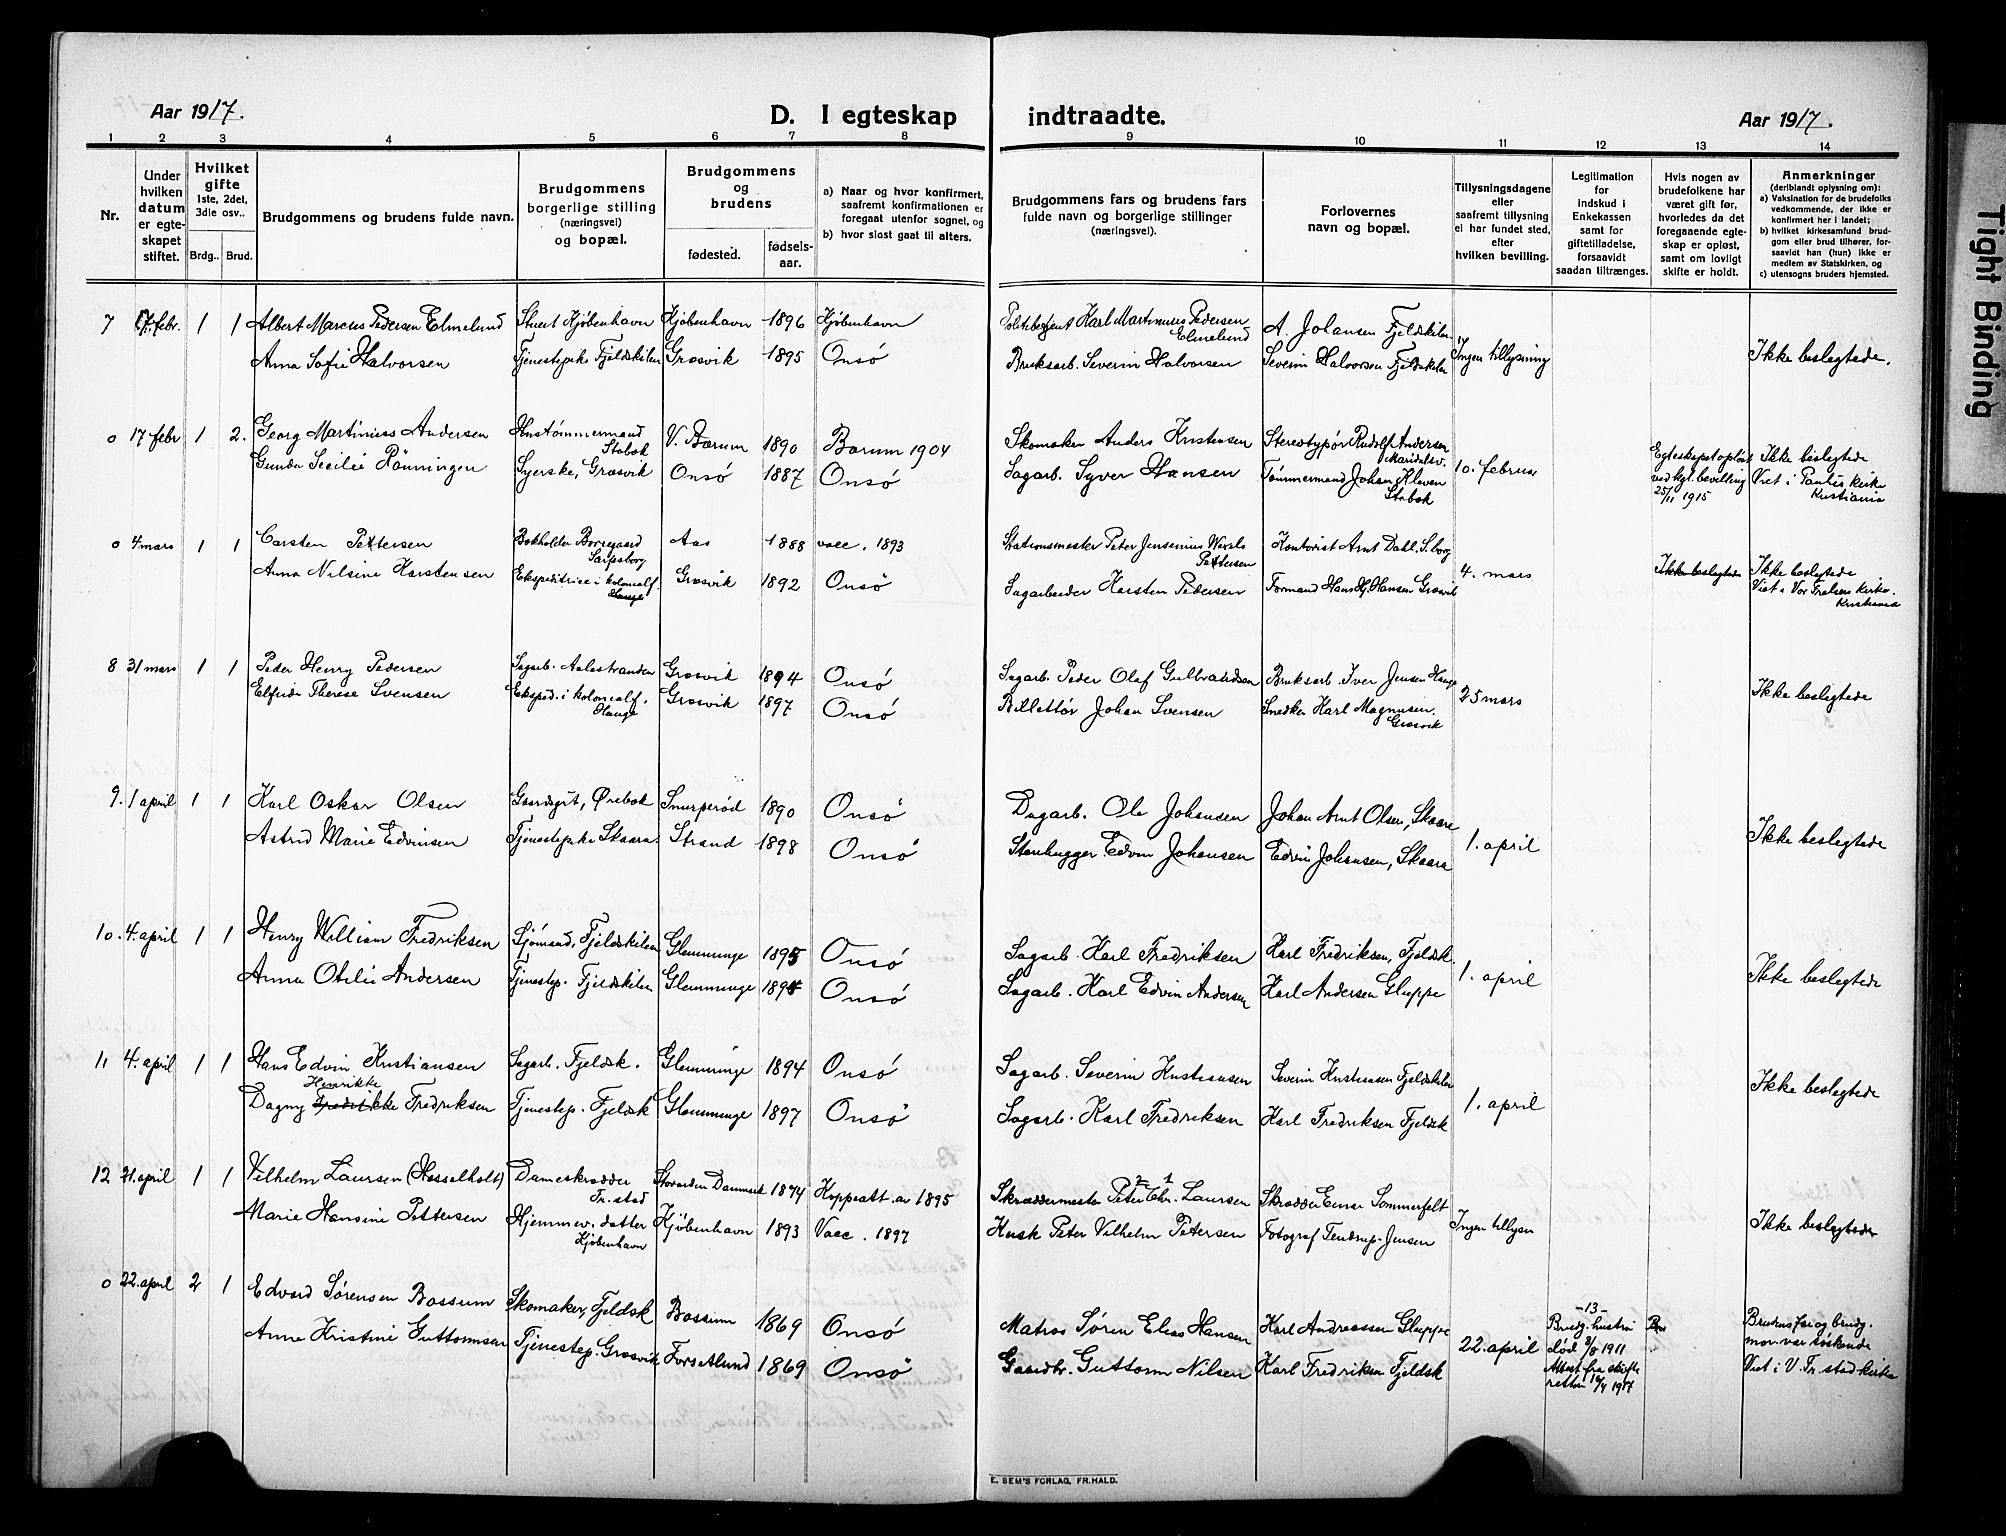 Aar 1917.
D. I egteskap indtraadte.
Aar 1917.
1 2 3 4 5 6 7 8 9 10 11 12 13 14
Nr.
Under hvilken datum er egte-skapet stiftet.
Hvilket gifte 1ste, 2det, 3die osv..
Brdg.. Brud.
Brudgommens og brudens fulde navn.
Brudgommens borgerlige stilling (næringsvei) og bopæl.
Brudgommens og brudens
fødested.
fødsels-aar.
a) Naar og hvor konfirmert, saafremt konfirmationen er foregaat utenfor sognet, og
b) hvor sidst gaat til alters.
Brudgommens fars og brudens fars fulde navn og borgerlige stillinger (næringsvei).
Forlovernes navn og bopæl.
Tillysningsdagene eller saafremt tillysning ei har fundet sted, efter hvilken bevilling.
Legitimation for indskud i Enkekassen samt for giftetilladelse, forsaavidt saadan tiltrænges.
Hvis nogen av brudefolkene har været gift før, hvorledes da det foregaaende egte-skap er opløst, samt om lovligt skifte er holdt.
Anmerkninger (deriblandt oplysning om):
a) Vaksination for de brudefolks vedkommende, der ikke er konfirmert her i landet;
b) hvilket kirkesamfund brud-gom eller brud tilhører, for-saavidt han (hun) ikke er medlem av Statskirken, og
c) utensogns bruders hjemsted.
7 17 febr. 1 1 Albert Marcus Pedersen Elmelund Stuert Kjøbenhavn Kjøbenhavn 1896 Kjøbenhavn Politibetjent Karl Martinius Pedersen Elmelund A. Johansen Fjeldskilen
Anna Sofie Halvorsen Tjenestepike Fjeldskilen Græsvik 1895 Onsö Bruksarb. Severin Halvorsen Severin Halvorsen Fjeldskilen Ingen tillysning Ikke beslegtede.
0 17 febr 1 2. Georg Martinius Andersen Hustömmermand Stabæk V. Bærum 1890 Bærum 1904 Skomaker Anders Kristensen Stereotypør Rudolf Andersen Maridalsv.
Gunda Secilie Rönningen Syerske, Græsvik Onsö 1887 Onsö Sagarb. Syver Hansen Tømmermand Johan Kleven Stabæk 10. februar Egteskapet opløst ved kgl. bevilling 25/11 1915 Ikke beslegtede Viet i Paulus kirke Kristiania
0 4 mars 1 1 Carsten Pettersen Bokholder Borregaard Sarpsborg Aas 1888 vacc. 1893 Stationsmester Peter Jensenius Pettersen Kontorist Arnt Dahl, S.borg
Anna Nilsine Karstensen Ekspeditrice i kolonialf. Hauge Græsvik 1892 Onsö Sagarbeider Karsten Pedersen Formand Hans Hj. Hansen Græsvik 4. mars Ikke beslegtede Ikke beslegtede Viet i Vor Frelsers kirke. Kristiania
8 31 mars 1 1 Peder Henry Pedersen Sagarb. Aalestranden Græsvik 1894 Onsö Sagarb. Peder Olaf Gulbrandsen Bruksarb. Iver Jensen Hauge
Elfrida Therese Svensen Eksped. i kolonialf. Hauge Græsvik 1897 Onsö Billettør Johan Svensen Snedker Karl Magnusen, Græsvik 25 mars Ikke beslegtede
9. 1 april 1 1 Karl Oskar Olsen Gaardsgut, Ørebæk Smurperød 1890 Onsö Dagarb. Ole Johansen Johan Arnt Olsen, Skaara
Astrid Marie Edvinsen Tjenestepike Skaara. Strand 1898 Onsö Stenhugger Edvin Johansen Edvin Johansen, Skaara 1. april Ikke beslegtede
10. 4. april 1 1 Henry William Fredriksen Sjömand, Fjeldskilen Glemminge 1895 Onsö Sagarb. Karl Fredriksen Karl Fredriksen, Fjeldsk.
Anna Otilie Andersen Tjenestep. Fjeldskilen Glemminge 1894 Onsö Sagarb. Karl Edvin Andersen Karl Andersen Gluppe 1. april Ikke beslegtede
11 4. april 1 1 Hans Edvin Kristiansen Sagarb. Fjeldsk. Glemminge 1894 Onsö Sagarb. Severin Kristiansen Severin Kristiansen Fjeldskilen
Henrikke
Dagny Fredrikke Fredriksen Tjenestep. Fjeldsk Glemminge 1897 Onsö Sagarb. Karl Fredriksen Karl Fredriksen Fjeldsk 1. april Ikke beslegtede
12 21. april 1 1 Vilhelm Laursen (Hasselholt) Dameskrædder Fr.stad Danmark 1874 Koppeatt. av 1895 Skræddermester Peter Chr. Laursen Skrædder Einar Sommerfelt
Marie Hansine Pettersen Hjemmev. datter Kjøbenhavn Kjøbenhavn 1893 Vacc. 1897 Kusk Peter Vilhelm Petersen Fotograf Tendrup-Jensen Ingen tillysn Ikke beslegtede
0 22. april 2 1 Edvard Sørensen Bossum Skomaker, Fjeldsk Bossum 1869 Onsö Matros Søren Elias Hansen Karl Andreassen Gluppe
Anne Kristine Guttormsen Tjenestep. Græsvik Forsetlund 1869 Onsö Gaardbr. Guttorm Nilsen Karl Fredriksen Fjeldsk 22. april -13- Brudg. hustru död 3/8 1911 Attest fra skifte retten 16/4 1917 Brudens far og brudg. mor var söskende Viet i V. Fr. stad kirke
E. SEM'S FORLAG, FR.HALD.
Tight Binding